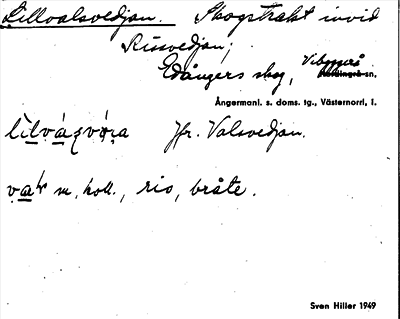 Lillvalsvedjan. Skogstrakt invid
Risvedjan,
Edångers skog, Vibyggerå
sn.
Ångermanl. s. doms. tg., Västernorrl. l.
Jfr. Valsvedjan.
m. koll., ris, bråte.
Sven Hiller 1949